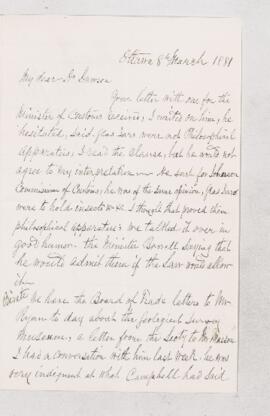 Ottawa 8 March 1881
My dear Dr Dawson
Your letter with one for the
Minister of Customs received, I waited on him, he
hesitated, said glass Jars were not Philosophical
Apparatus, I read the clause, but he would not
agree to my interpretation. He sent for Johnson
Commissioner of Customs, he was of the same opinion, glass Jars
were to hold insects &c &c. I thought that proved them
philosophical apparatus. We talked it over in
good humor. the Minister Bowell saying that
he would admit them if the law would allow
him
Private We have the Board of Trade letters to Mr
Ryan to day about the Geological Survey
Museum, a letter from the Secty to
I had a conversation with him last week. he was
very indignant at what Campbell had said